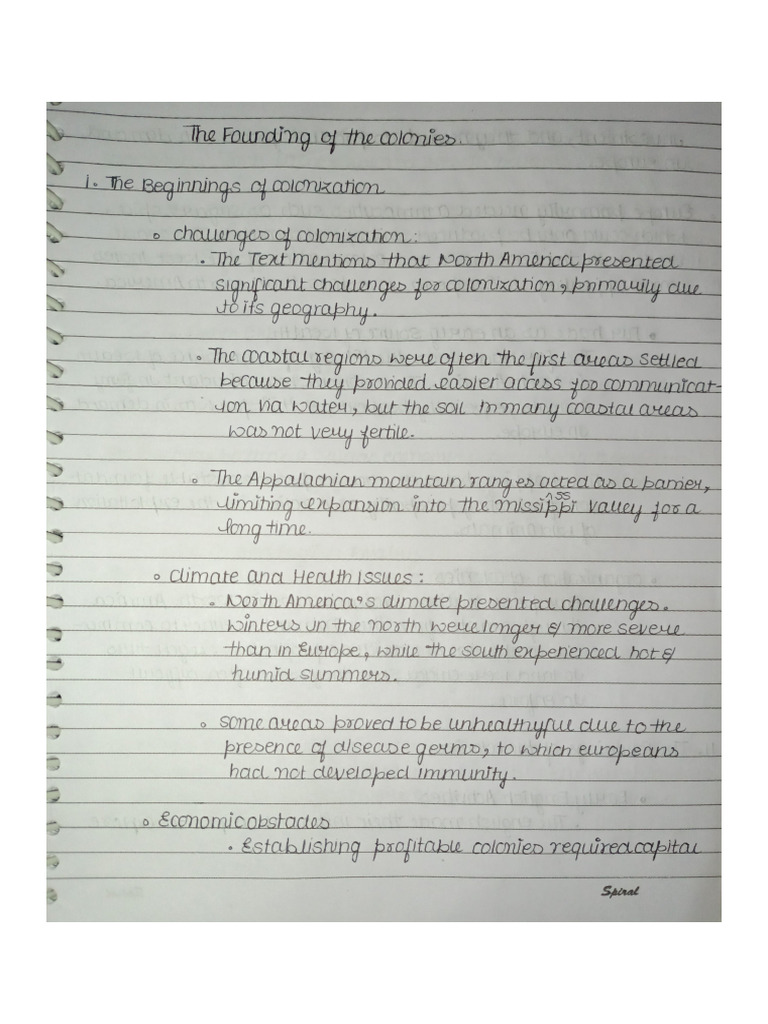 The Founding of the colonies.
1. The Beginnings of colonization
challenges of colonization:
The Text mentions that North America presented
significant challenges for colonization, primarily due
to its geography.
The coastal regions were often the first areas settled
because they provided easier access for communicat-
ion via water, but the soil in many coastal areas
was not very fertile.
The Appalachian mountain ranges acted as a barrier,
limiting expansion into the missi^ssppi valley for a
long time.
climate and Health Issues:
North America's climate presented challenges.
winters in the north were longer & more severe
than in Europe, while the south experienced hot &
humid summers.
some areas proved to be unhealthyful due to the
presence of disease germs, to which europeans
had not developed immunity.
Economic obstacles
Establishing profitable colonies required capital
Spiral